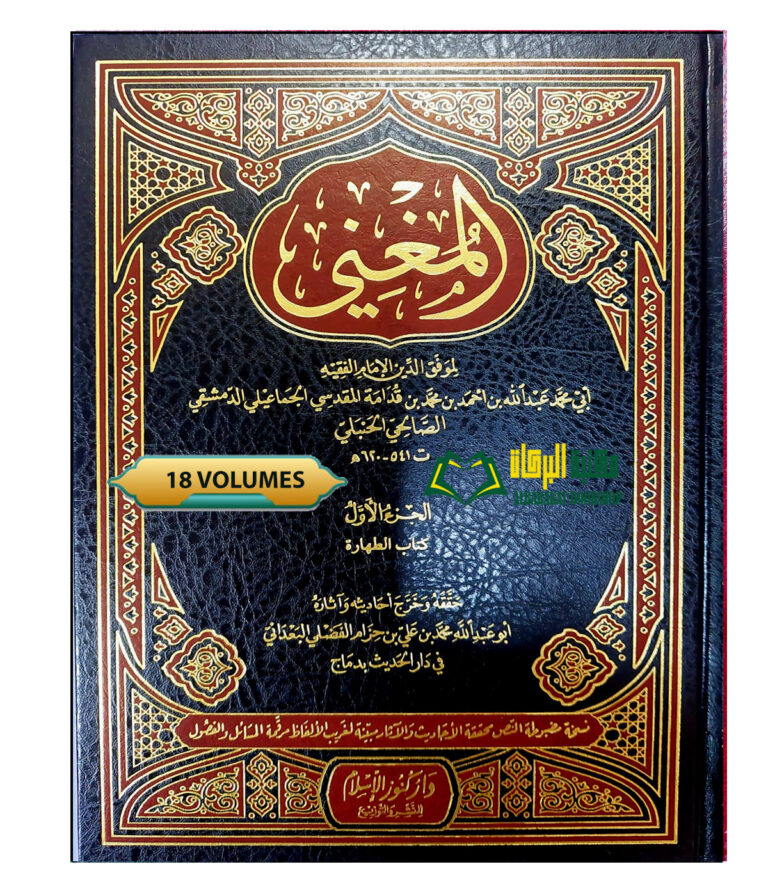 المُغْنِي
لموفق الدين الإمام الفقيه
أبي محمد عبد الله بن أحمد بن محمد بن قدامة المقدسي الجماعيلي الدمشقي
الصالحي الحنبلي
ت ٥٤١-٦٢٠هـ
18 VOLUMES
الجزء الأول
كتاب الطهارة
حققه وخرج أحاديثه وآثاره
أبو عبد الله محمد بن علي بن حزام الفضلي البعداني
في دار الحديث بدماج
نسخة مضبوطة النص محققة الأحاديث والآثار مبينة لغريب الألفاظ مرقمة المسائل والفصول
دار كنوز الإسلام
للنشر والتوزيع